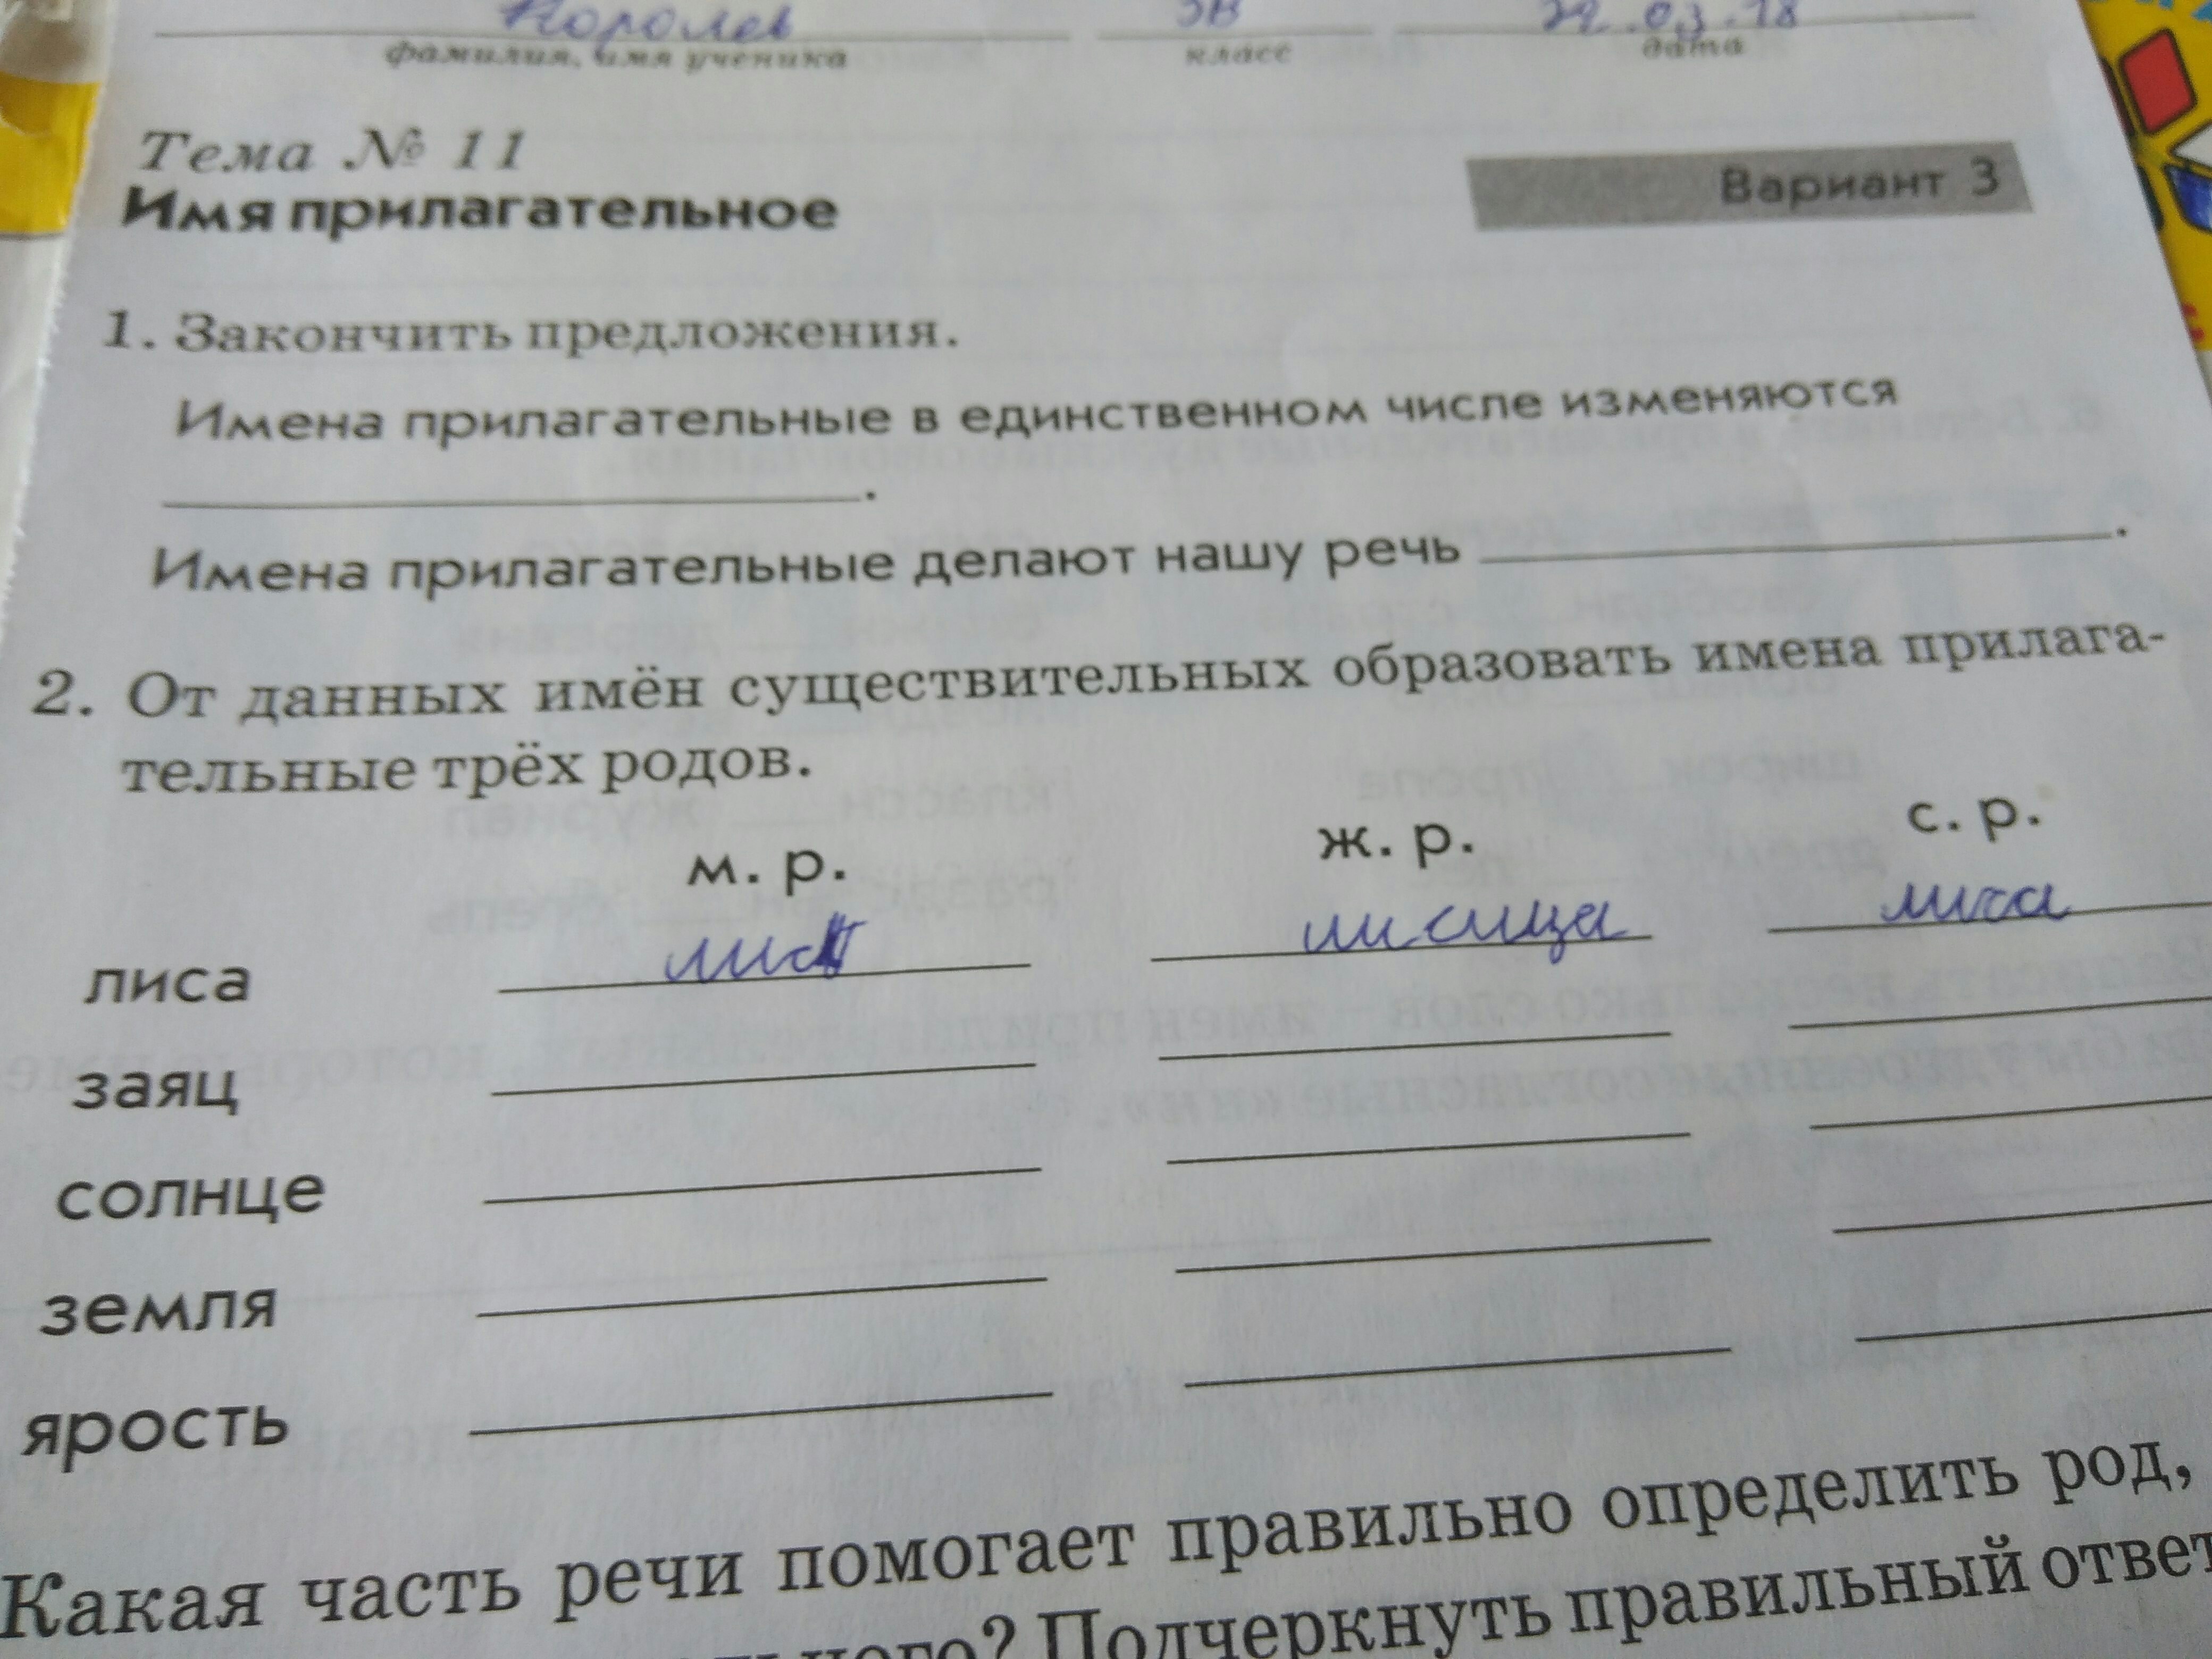 Королев 3В 22.03.18
фамилия, имя ученика класс дата
Тема № 11
Имя прилагательное Вариант 3
1. Закончить предложения.
Имена прилагательные в единственном числе изменяются
.
Имена прилагательные делают нашу речь .
2. От данных имён существительных образовать имена прилага-
тельные трёх родов.
м. р. ж. р. с. р.
лиса лисица лиса
заяц
солнце
земля
ярость
Какая часть речи помогает правильно определить род,
Подчеркнуть правильный ответ